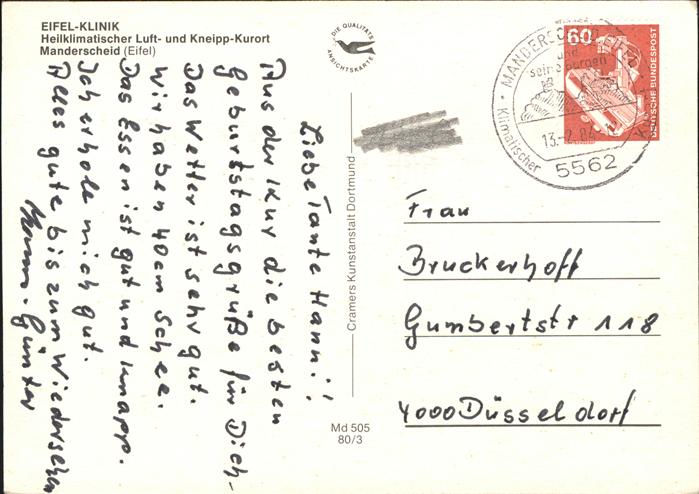 EIFEL-KLINIK
Heilklimatischer Luft- und Kneipp-Kurort
Manderscheid (Eifel)
DIE QUALITÄTS
ANSICHTSKARTE
Liebe Tante Hanni!
Aus der Kur die besten
Geburtstagsgrüße für Dich-
Das Wetter ist sehr gut.
Wir haben 40cm Schee.
Das Essen ist gut und knapp.
Ich erhole mich gut.
Alles gute bis zum Wiedersehn
Günter
Cramers Kunstanstalt Dortmund
Md 505
80/3
60
DEUTSCHE BUNDESPOST
und
seine Burgen
13.-2.84
Klimatischer
5562
Frau
Bruckerhoff
Gumbertstr 118
4000 Düsseldorf